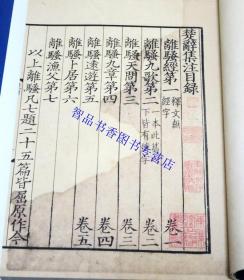 楚辭集注目録
離騷經第一 釋文無經字 卷一
離騷九歌第二 一本此篇以下皆有傳字 卷二
離騷天問第三 卷三
離騷九章第四 卷四
離騷遠遊第五
離騷卜居第六
離騷漁父第七 卷五
以上離騷凡七題二十五篇皆屈原作今
智品书香图书专营